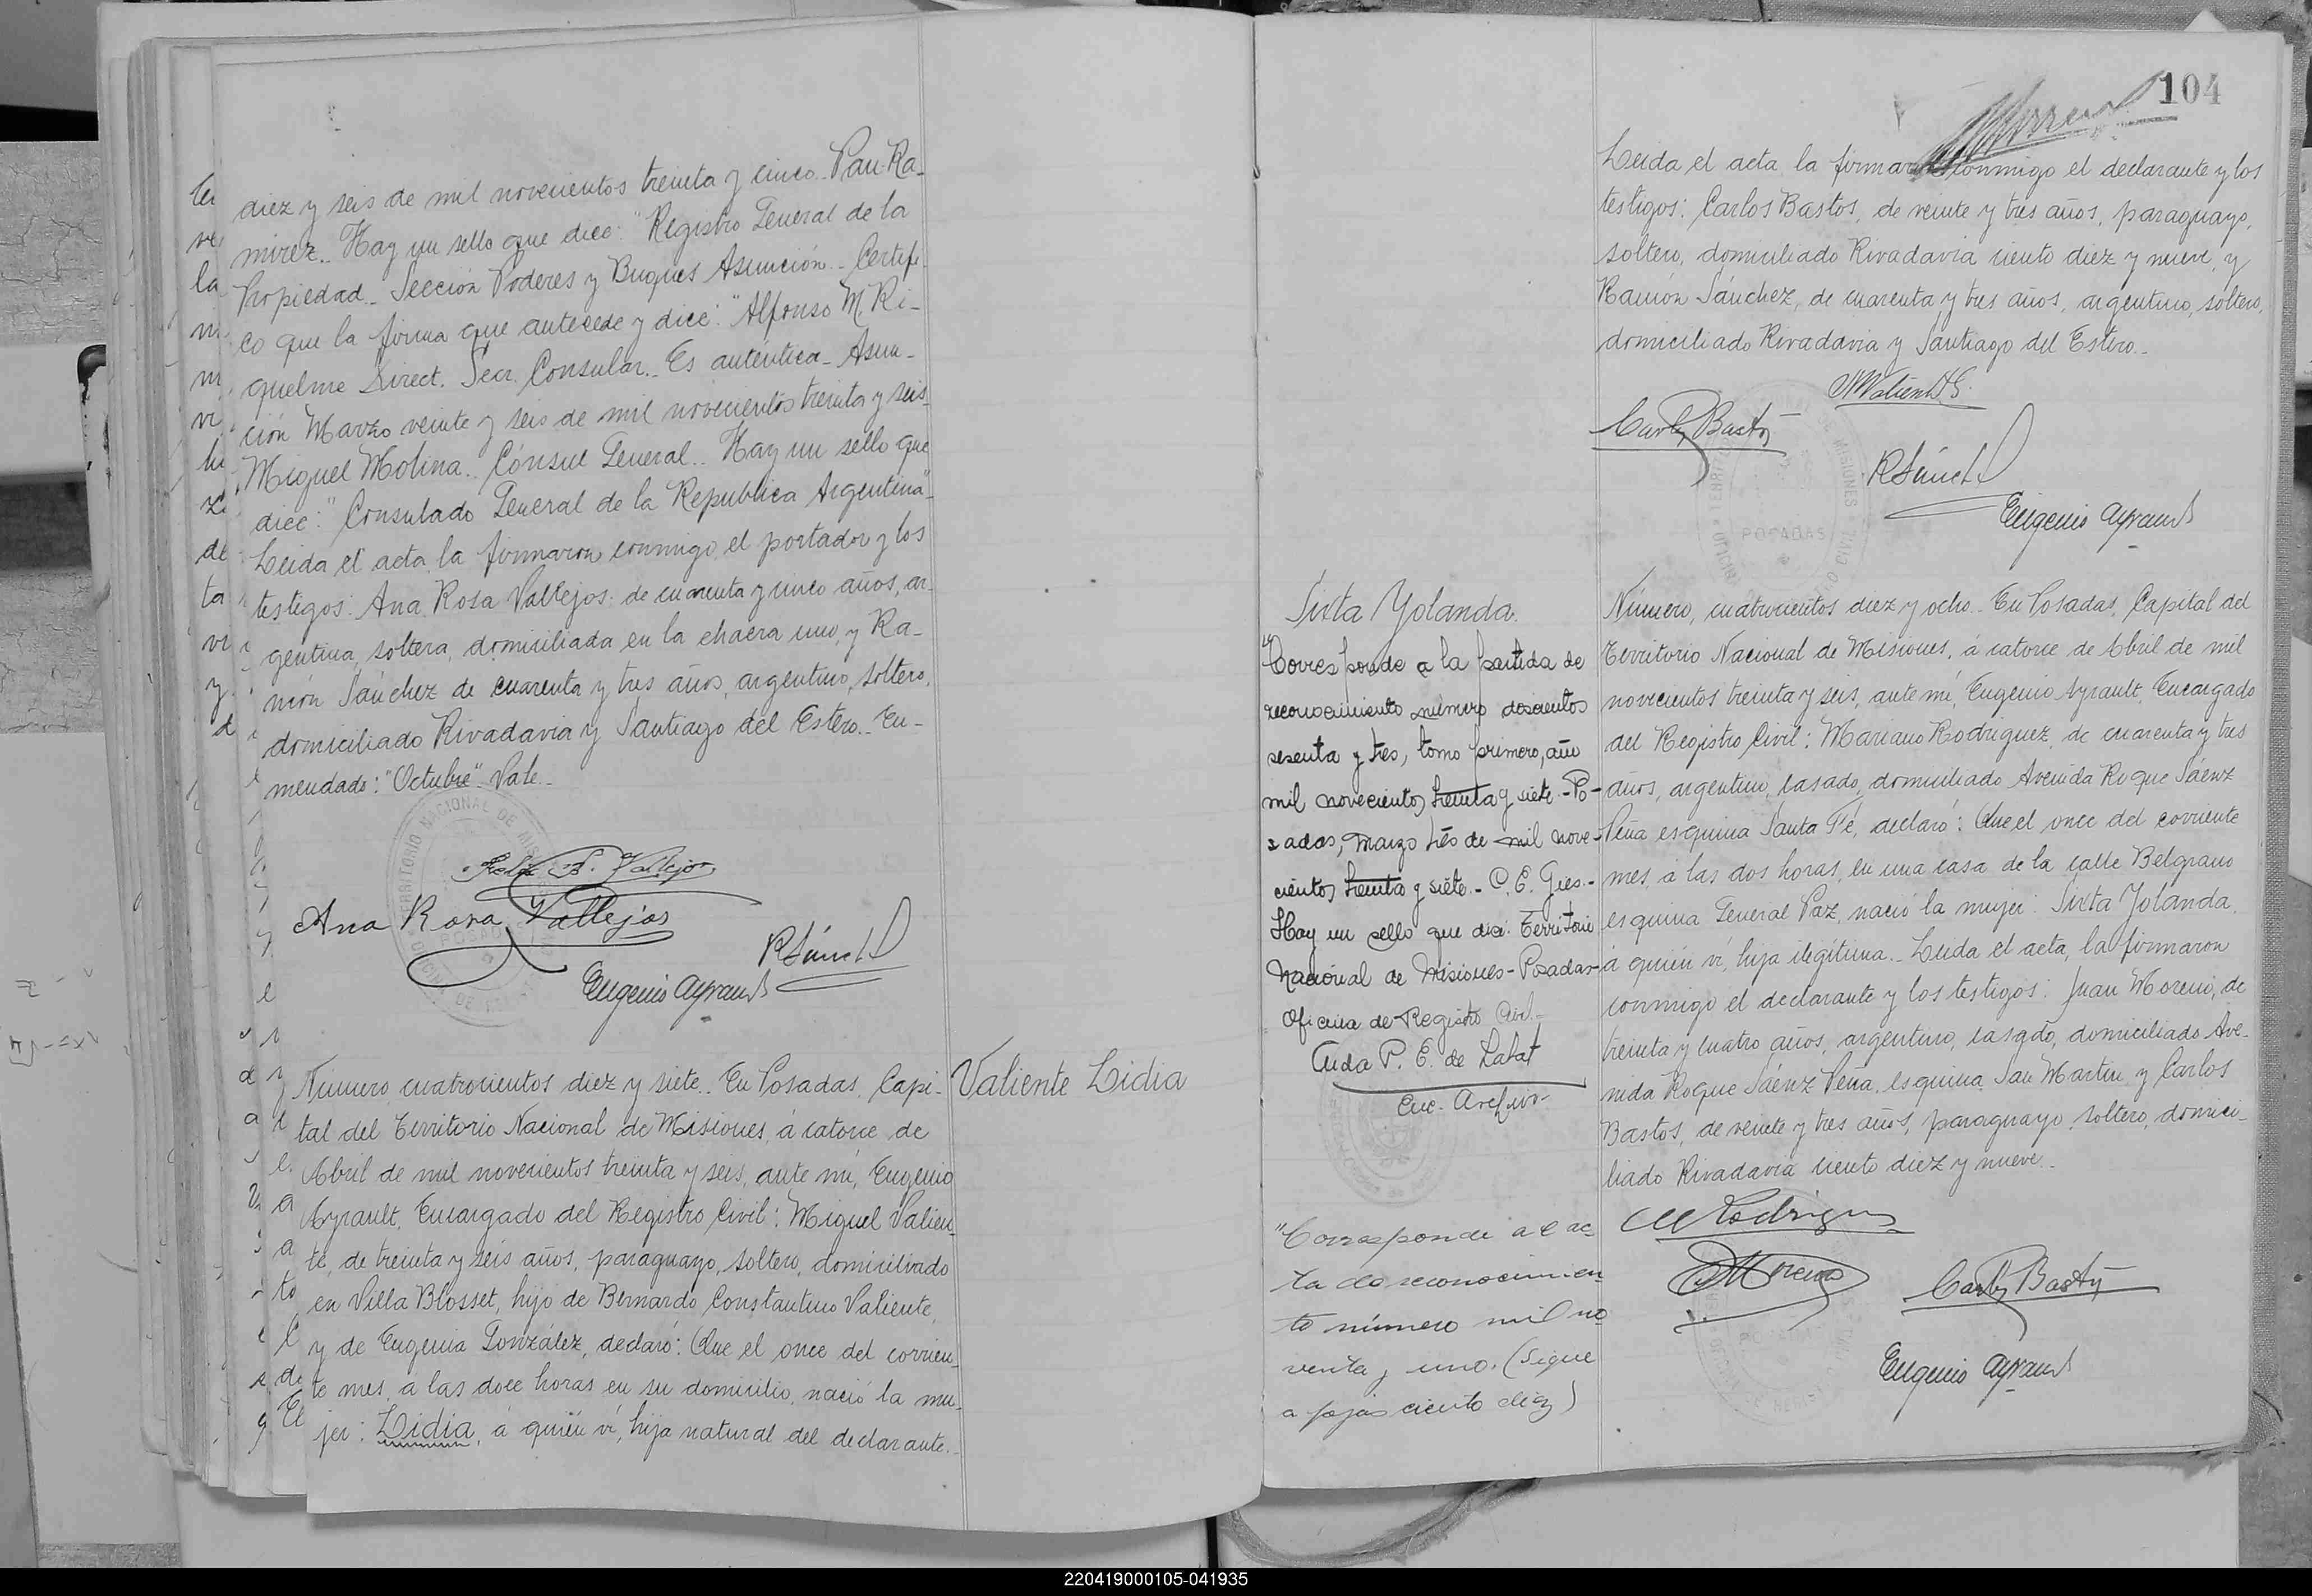 diez y seis de mil novecientos treinta y cinco. Pau Ra-
mirez.. Hay un sello que dice: "Registro General de la
Propiedad.. Sección Poderes y Buques Asunción.. Certifi-
co que la firma que antecede y dice: "Alfonso M. Ri-
quelme Direct. Secr. Consular.. Es auténtica.. Asun-
ción Marzo veinte y seis de mil novecientos treinta y seis..
Miguel Molina.. Cónsul General.. Hay un sello que
dice: "Consulado General de la Republica Argentina"..
Leida el acta, la firmaron conmigo, el portador y los
testigos: Ana Rosa Vallejos: de cuarenta y cinco años, ar-
gentina, soltera, domiciliada en la chacra uno, y Ra-
món Sánchez de cuarenta y tres años, argentino, soltero,
domiciliado Rivadavia y Santiago del Estero.. En-
mendado: "Octubre" Vale..
Vallejos
Ana Rosa Vallejos
RSánchez
Eugenio Ayrault
Número, cuatrocientos diez y siete.. En Posadas, Capi-
tal del Territorio Nacional de Misiones, á catorce de
Abril de mil novecientos treinta y seis, ante mí, Eugenio
Ayrault, Encargado del Registro Civil: Miguel Valien-
te, de treinta y seis años, paraguayo, soltero, domiciliado
en Villa Blosset, hijo de Bernardo Constantino Valiente,
y de Eugenia González, declaró: Que el once del corrien-
te mes, á las doce horas en su domicilio, nació la mu-
jer: Lidia, á quién ví, hija natural del declarante..
Valiente Lidia
104
Leida el acta, la firmaron conmigo el declarante y los
testigos: Carlos Bastos, de veinte y tres años, paraguayo,
soltero, domiciliado Rivadavia ciento diez y nueve, y
Ramón Sánchez, de cuarenta y tres años, argentino, soltero,
domiciliado Rivadavia y Santiago del Estero..
Carlos Bastos
RSánchez
Eugenio Ayrault
POSADAS
Sixta Yolanda.
"Corresponde a la partida de
reconocimiento número doscientos
sesenta y tres, tomo primero, año
mil novecientos treinta y siete.-Po-
sadas, Marzo trés de mil nove-
cientos treinta y siete.- C. E. Gies.-
Hay un sello que dice: Territorio
Nacional de Misiones-Posadas-
Oficina de Registro Civil.-
Enc. Archivo-
"Corresponde al ac-
ta de reconocimien-
to número mil no-
venta y uno. (Sigue
a fojas ciento diez)
Número, cuatrocientos diez y ocho.. En Posadas, Capital del
Territorio Nacional de Misiones, á catorce de Abril de mil
novecientos treinta y seis, ante mí, Eugenio Ayrault, Encargado
del Registro Civil: Mariano Rodriguez, de cuarenta y tres
años, argentino, casado, domiciliado Avenida Roque Sáenz
Peña esquina Santa Fé, declaró: Que el once del corriente
mes, á las dos horas, en una casa de la calle Belgrano
esquina General Paz, nació la mujer: Sixta Yolanda,
á quién ví, hija ilegítima.. Leida el acta, la firmaron
conmigo el declarante y los testigos: Juan Moreno, de
treinta y cuatro años, argentino, casado, domiciliado Ave-
nida Roque Sáenz Peña, esquina San Martin, y Carlos
Bastos, de veinte y tres años, paraguayo, soltero, domici-
liado Rivadavia ciento diez y nueve..
M Rodriguez
JMoreno
Carlos Bastos
Eugenio Ayrault
220419000105-041935